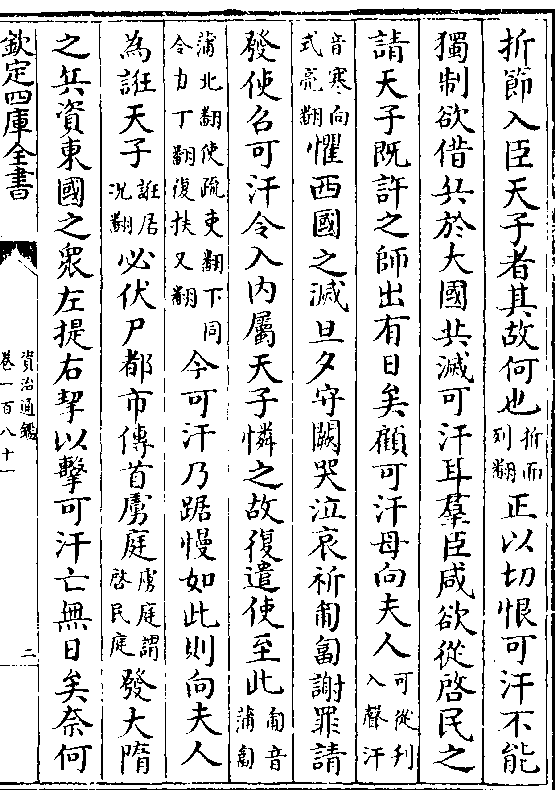 折節入臣天子者其故何也折而列翻正以切恨可汗不能
獨制欲借兵於大國共滅可汗耳羣臣咸欲從啓民之
請天子既許之師出有日矣顧可汗母向夫人可從刋入聲汗
音寒向式亮翻懼西國之滅旦夕守闕哭泣哀祈匍匐謝罪請
發使召可汗令入內屬天子憐之故復遣使至此匍音蒲匐
蒲北翻使疏吏翻下同令力丁翻復扶又翻今可汗乃踞慢如此則向夫人
為誑天子誑居況翻必伏尸都市傳首虜庭虜庭謂啓民庭發大隋
之兵資東國之衆左提右挈以擊可汗亡無日矣奈何
欽定四庫全書
資治通鑑
卷一百八十一
二